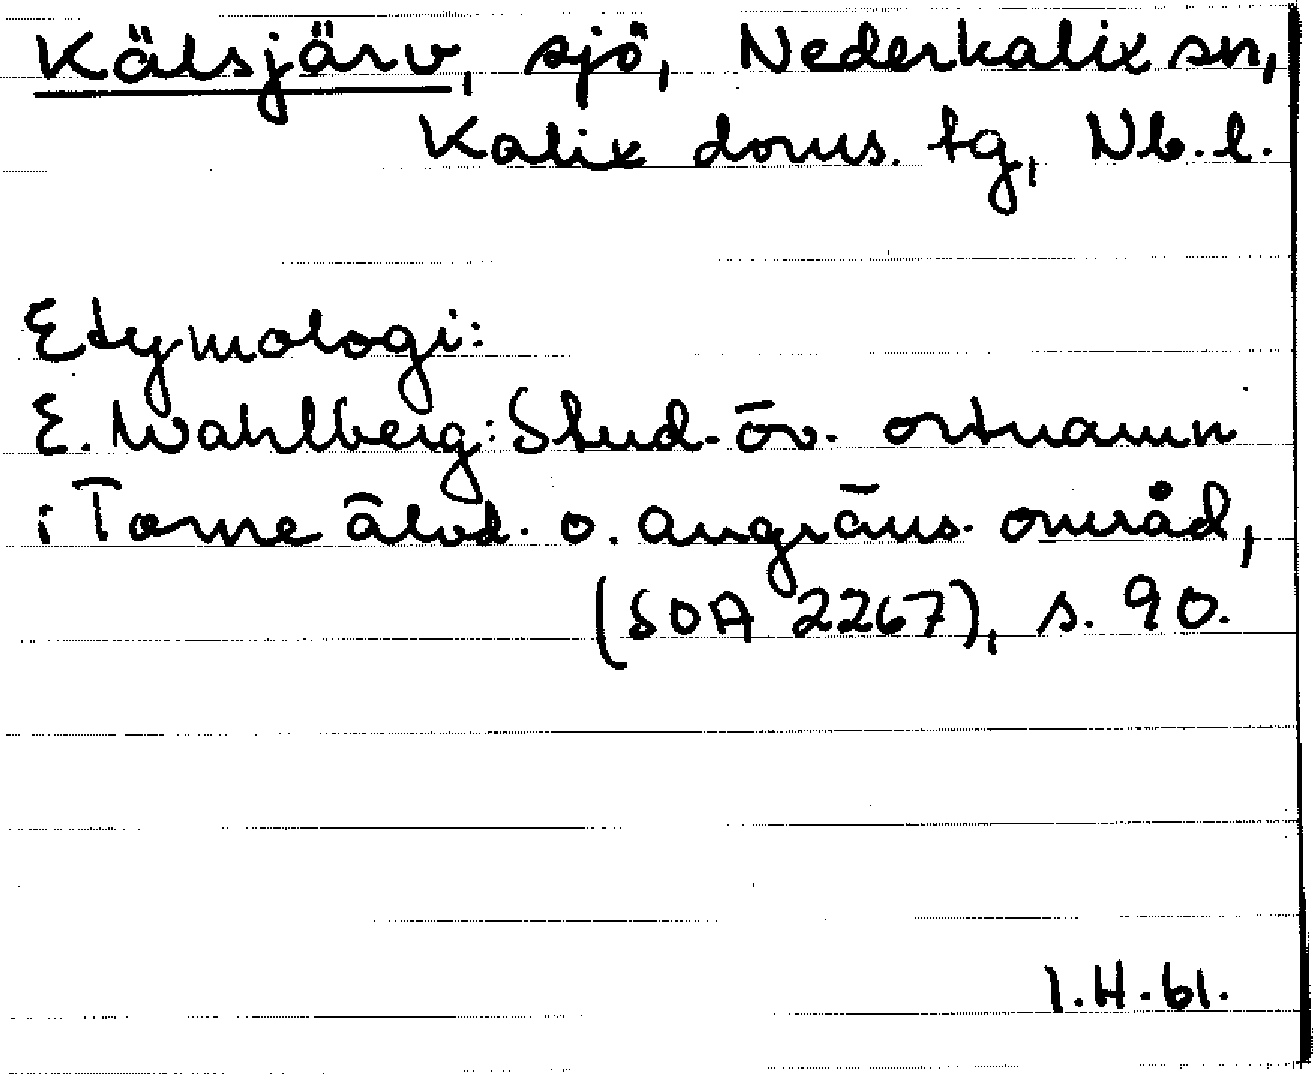 Kälsjärv, sjö, Nederkalix sn,
Kalix doms. tg, Nb. l.
Etymologi:
E. Wahlberg: Stud. öv. ortnamn
i Torne älvd. o. angräns. områd,
(SOA 2267), s. 90.
I.H.61.